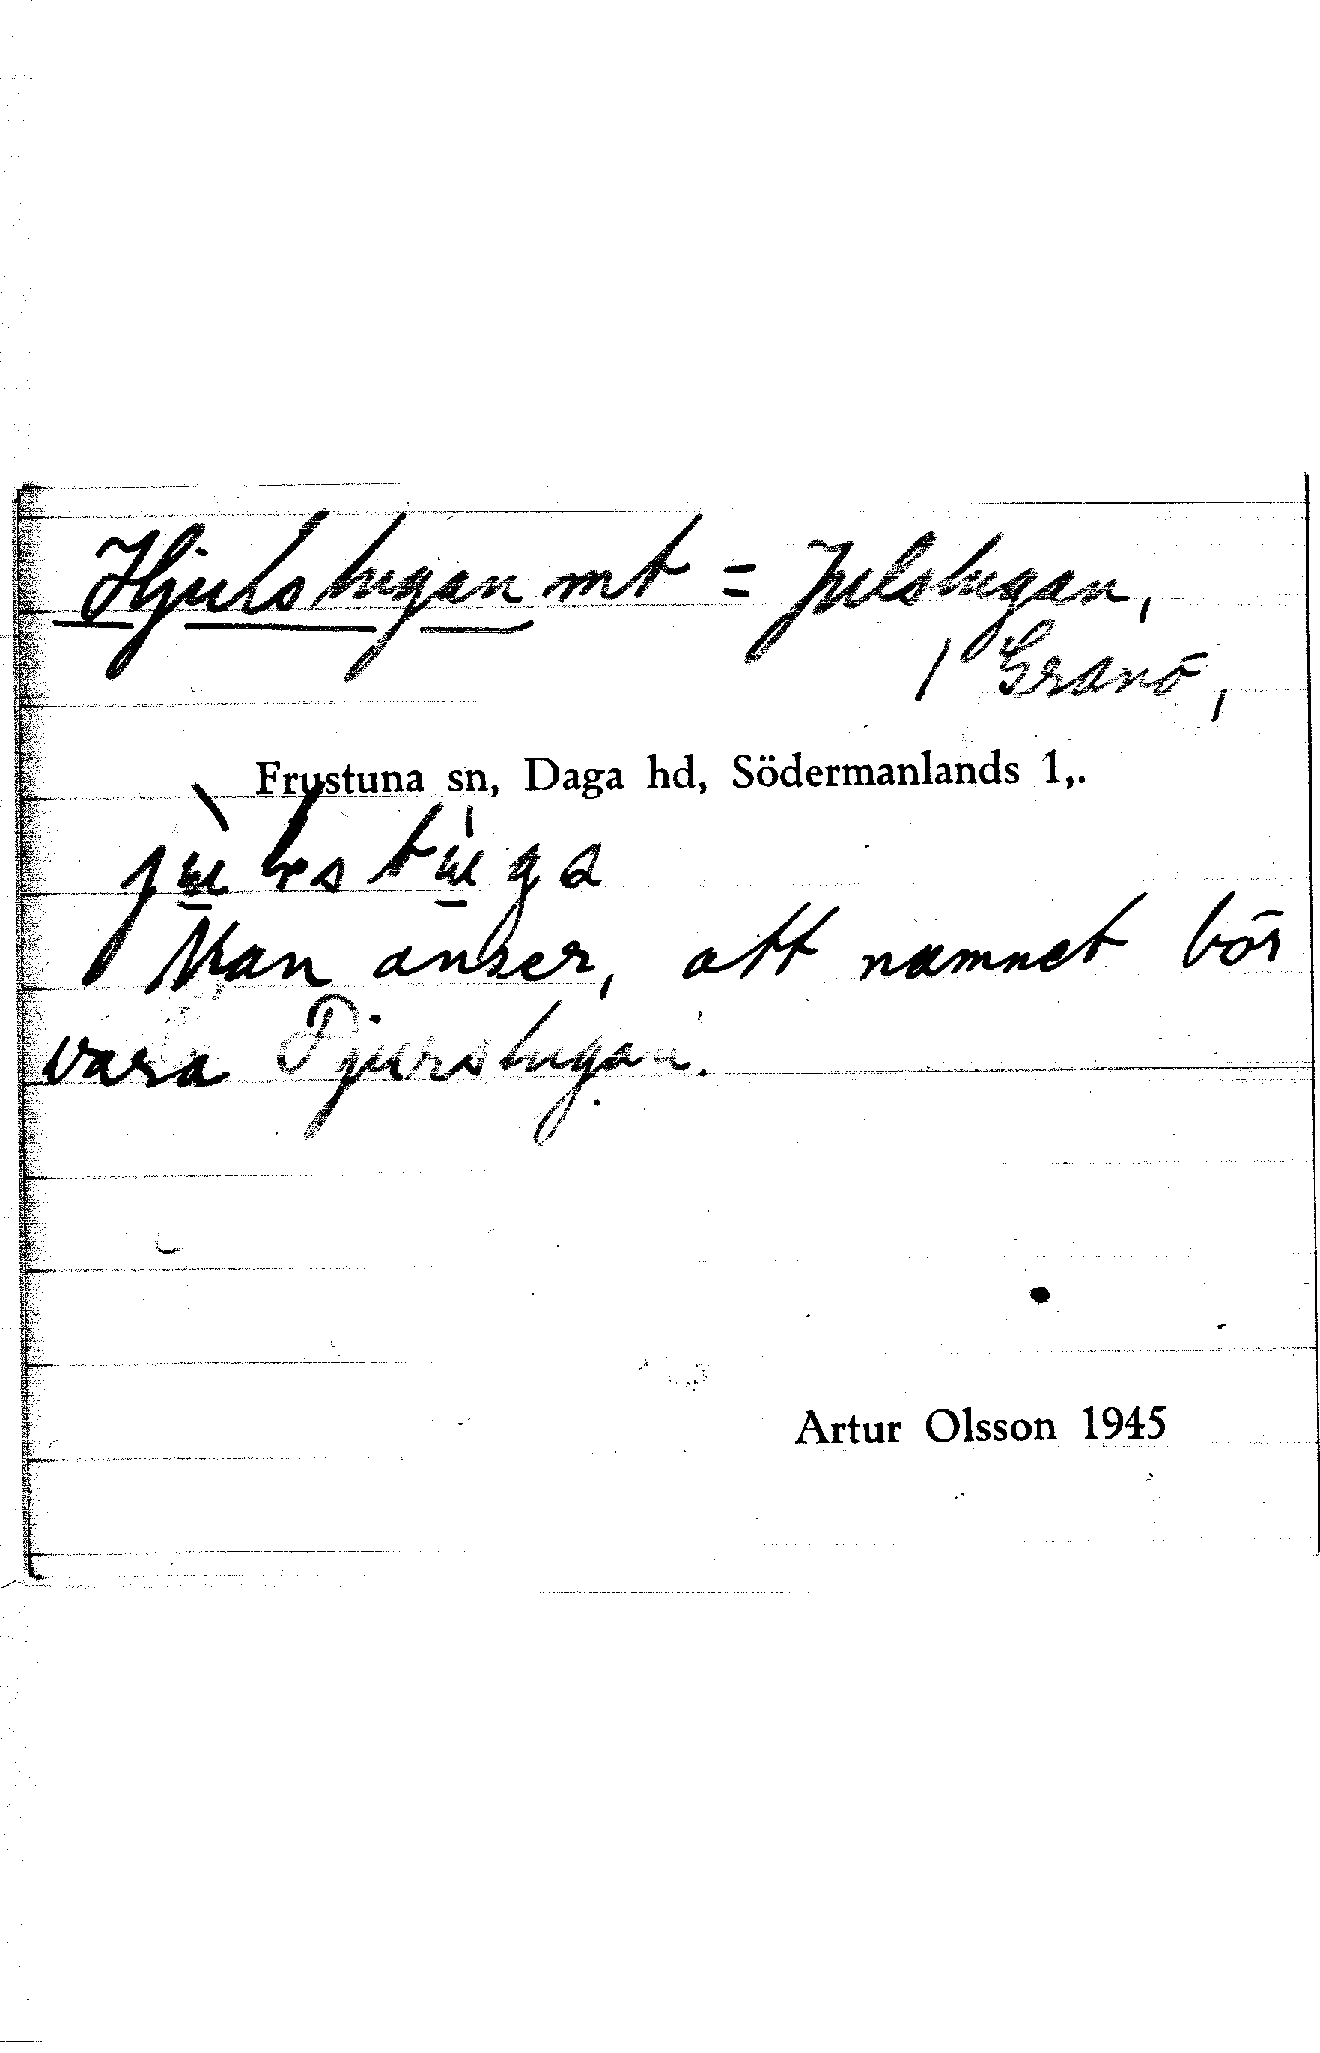 Hjulstugan mt = Julstugan,
/ Granö,
Frustuna sn, Daga hd, Södermanlands l,.
Man anser, att namnet bör
vara Tjurstugan.
Artur Olsson 1945